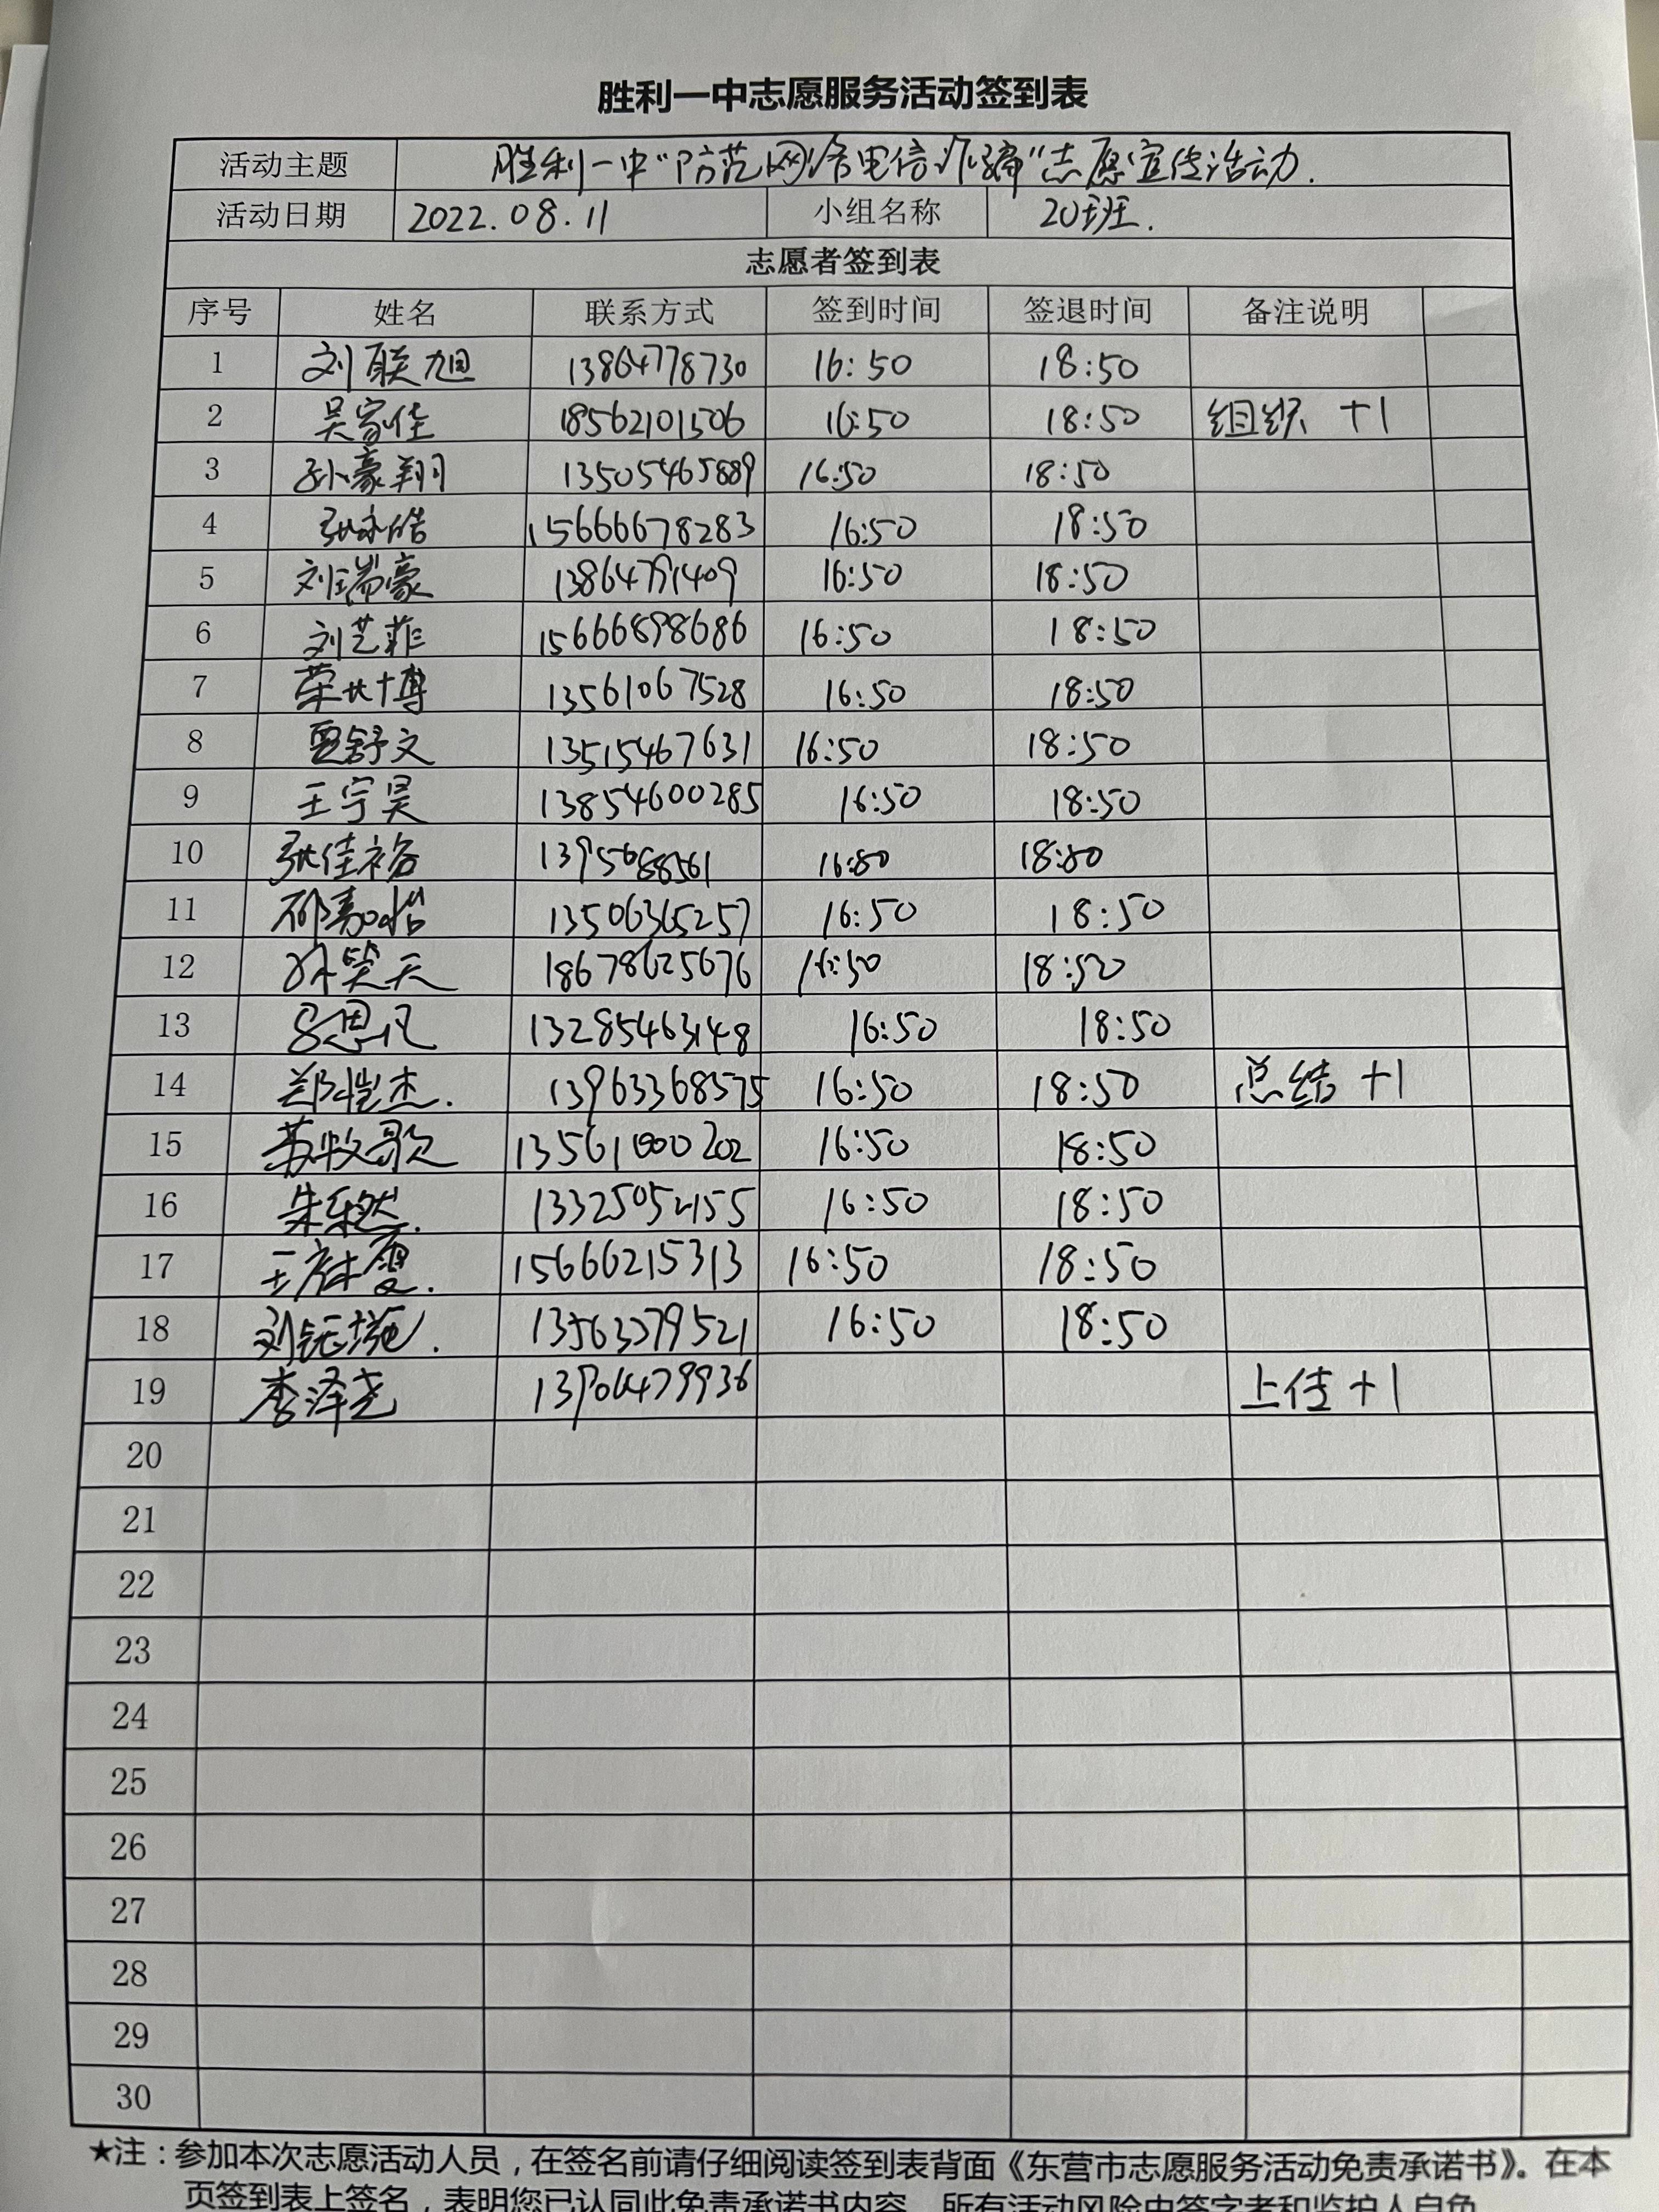 胜利一中志愿服务活动签到表
活动主题 胜利一中“防范网络电信诈骗”志愿宣传活动.
活动日期 2022.08.11 小组名称 20班.
志愿者签到表
序号 姓名 联系方式 签到时间 签退时间 备注说明
1 刘联旭 13864778730 16:50 18:50
2 吴家佳 18562101506 16:50 18:50 组织 +1
3 孙豪翔 13505465889 16:50 18:50
4 张永皓 15666678283 16:50 18:50
5 刘瑞豪 13864791409 16:50 18:50
6 刘艺菲 15666898686 16:50 18:50
7 荣世博 13561067528 16:50 18:50
8 贾舒文 13515467631 16:50 18:50
9 王宇昊 13854600285 16:50 18:50
10 张佳裕 16:50 18:50
11 邴嘉怡 13506365257 16:50 18:50
12 孙笑天 18678625676 16:50 18:50
13 吕思凡 13285463148 16:50 18:50
14 郑恺杰. 13963368575 16:50 18:50 总结 +1
15 苏牧歌 13561000202 16:50 18:50
16 朱乐然. 13325052155 16:50 18:50
17 15666215313 16:50 18:50
18 13563379521 16:50 18:50
19 李泽尧 13906479936 上传 +1
20
21
22
23
24
25
26
27
28
29
30
★注：参加本次志愿活动人员，在签名前请仔细阅读签到表背面《东营市志愿服务活动免责承诺书》。在本
页签到表上签名，表明您已认同此免责承诺书内容，所有活动风险由签字者和监护人自负